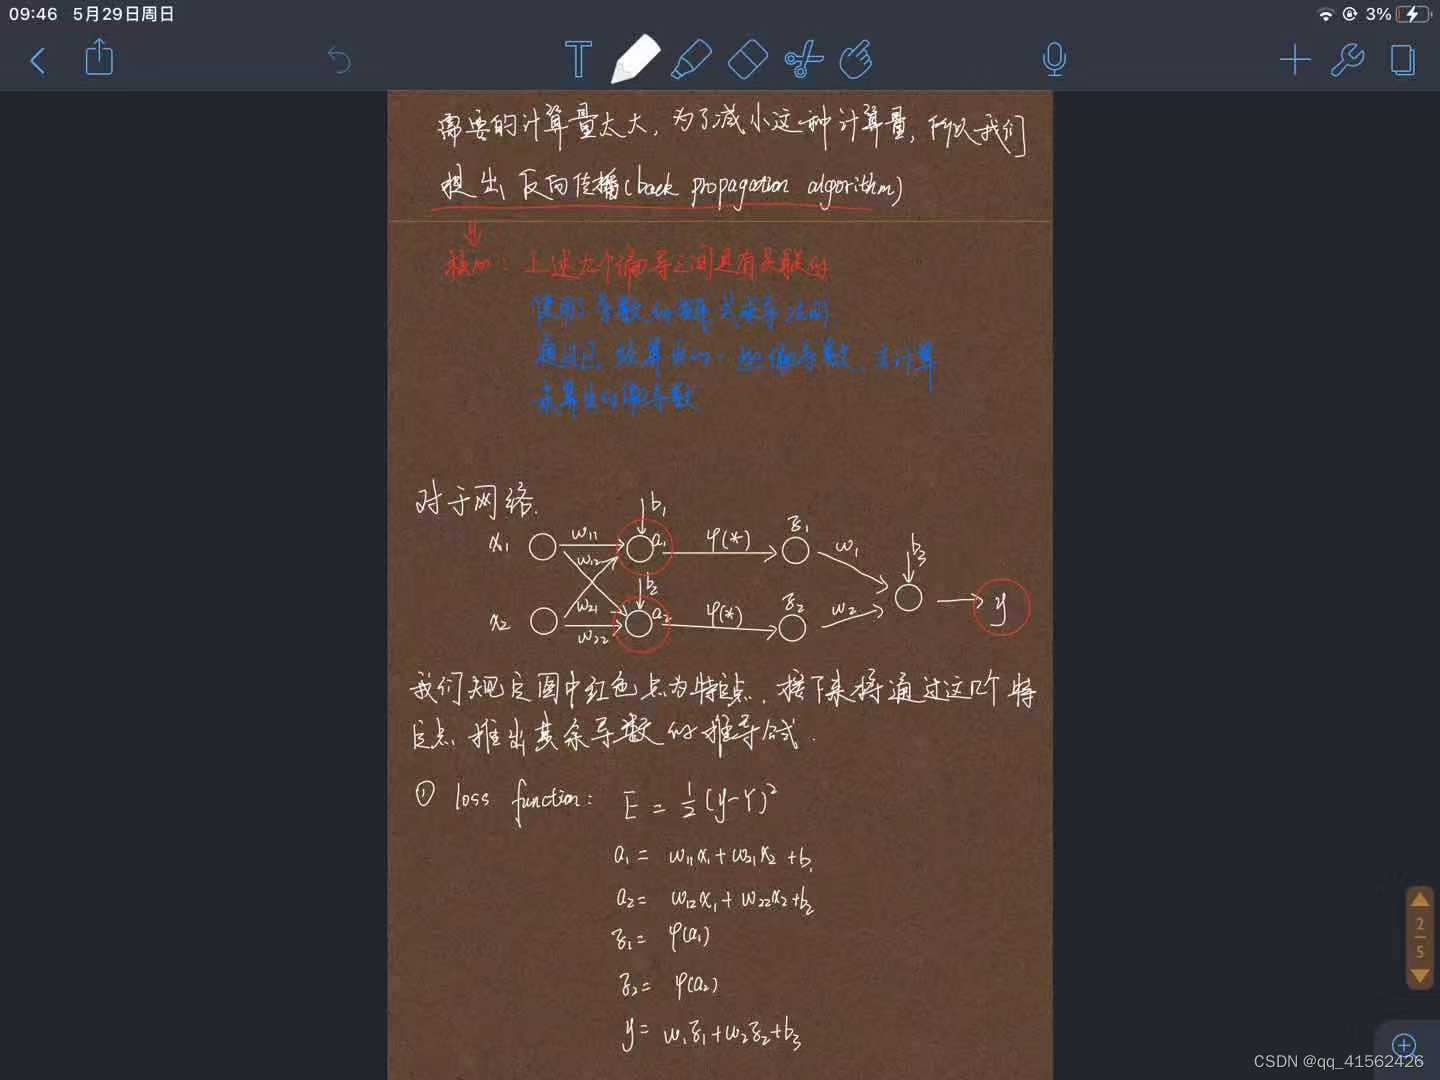 09:46 5月29日周日
3%
需要的计算量太大,为了减小这种计算量,所以我们
提出反向传播(back propagation algorithm)
核心:上述九个偏导之间是有关联的
使用:导数的链式求导法则
通过已经算出的一些偏导数,去计算
未算出的偏导数
对于网络.
b₁
x₁ w₁₁ a₁ φ(*) z₁ w₁ b₃
w₁₂ b₂
w₂₁
x₂ w₂₂ a₂ φ(*) z₂ w₂ y
我们规定图中红色点为特定点,接下来将通过这几个特
定点推出其余导数的推导公式.
① loss function: E = ½(y-Y)²
a₁ = w₁₁x₁ + w₂₁x₂ + b₁
a₂ = w₁₂x₁ + w₂₂x₂ + b₂
z₁ = φ(a₁)
z₂ = φ(a₂)
y = w₁z₁ + w₂z₂ + b₃
2
5
CSDN @qq_41562426